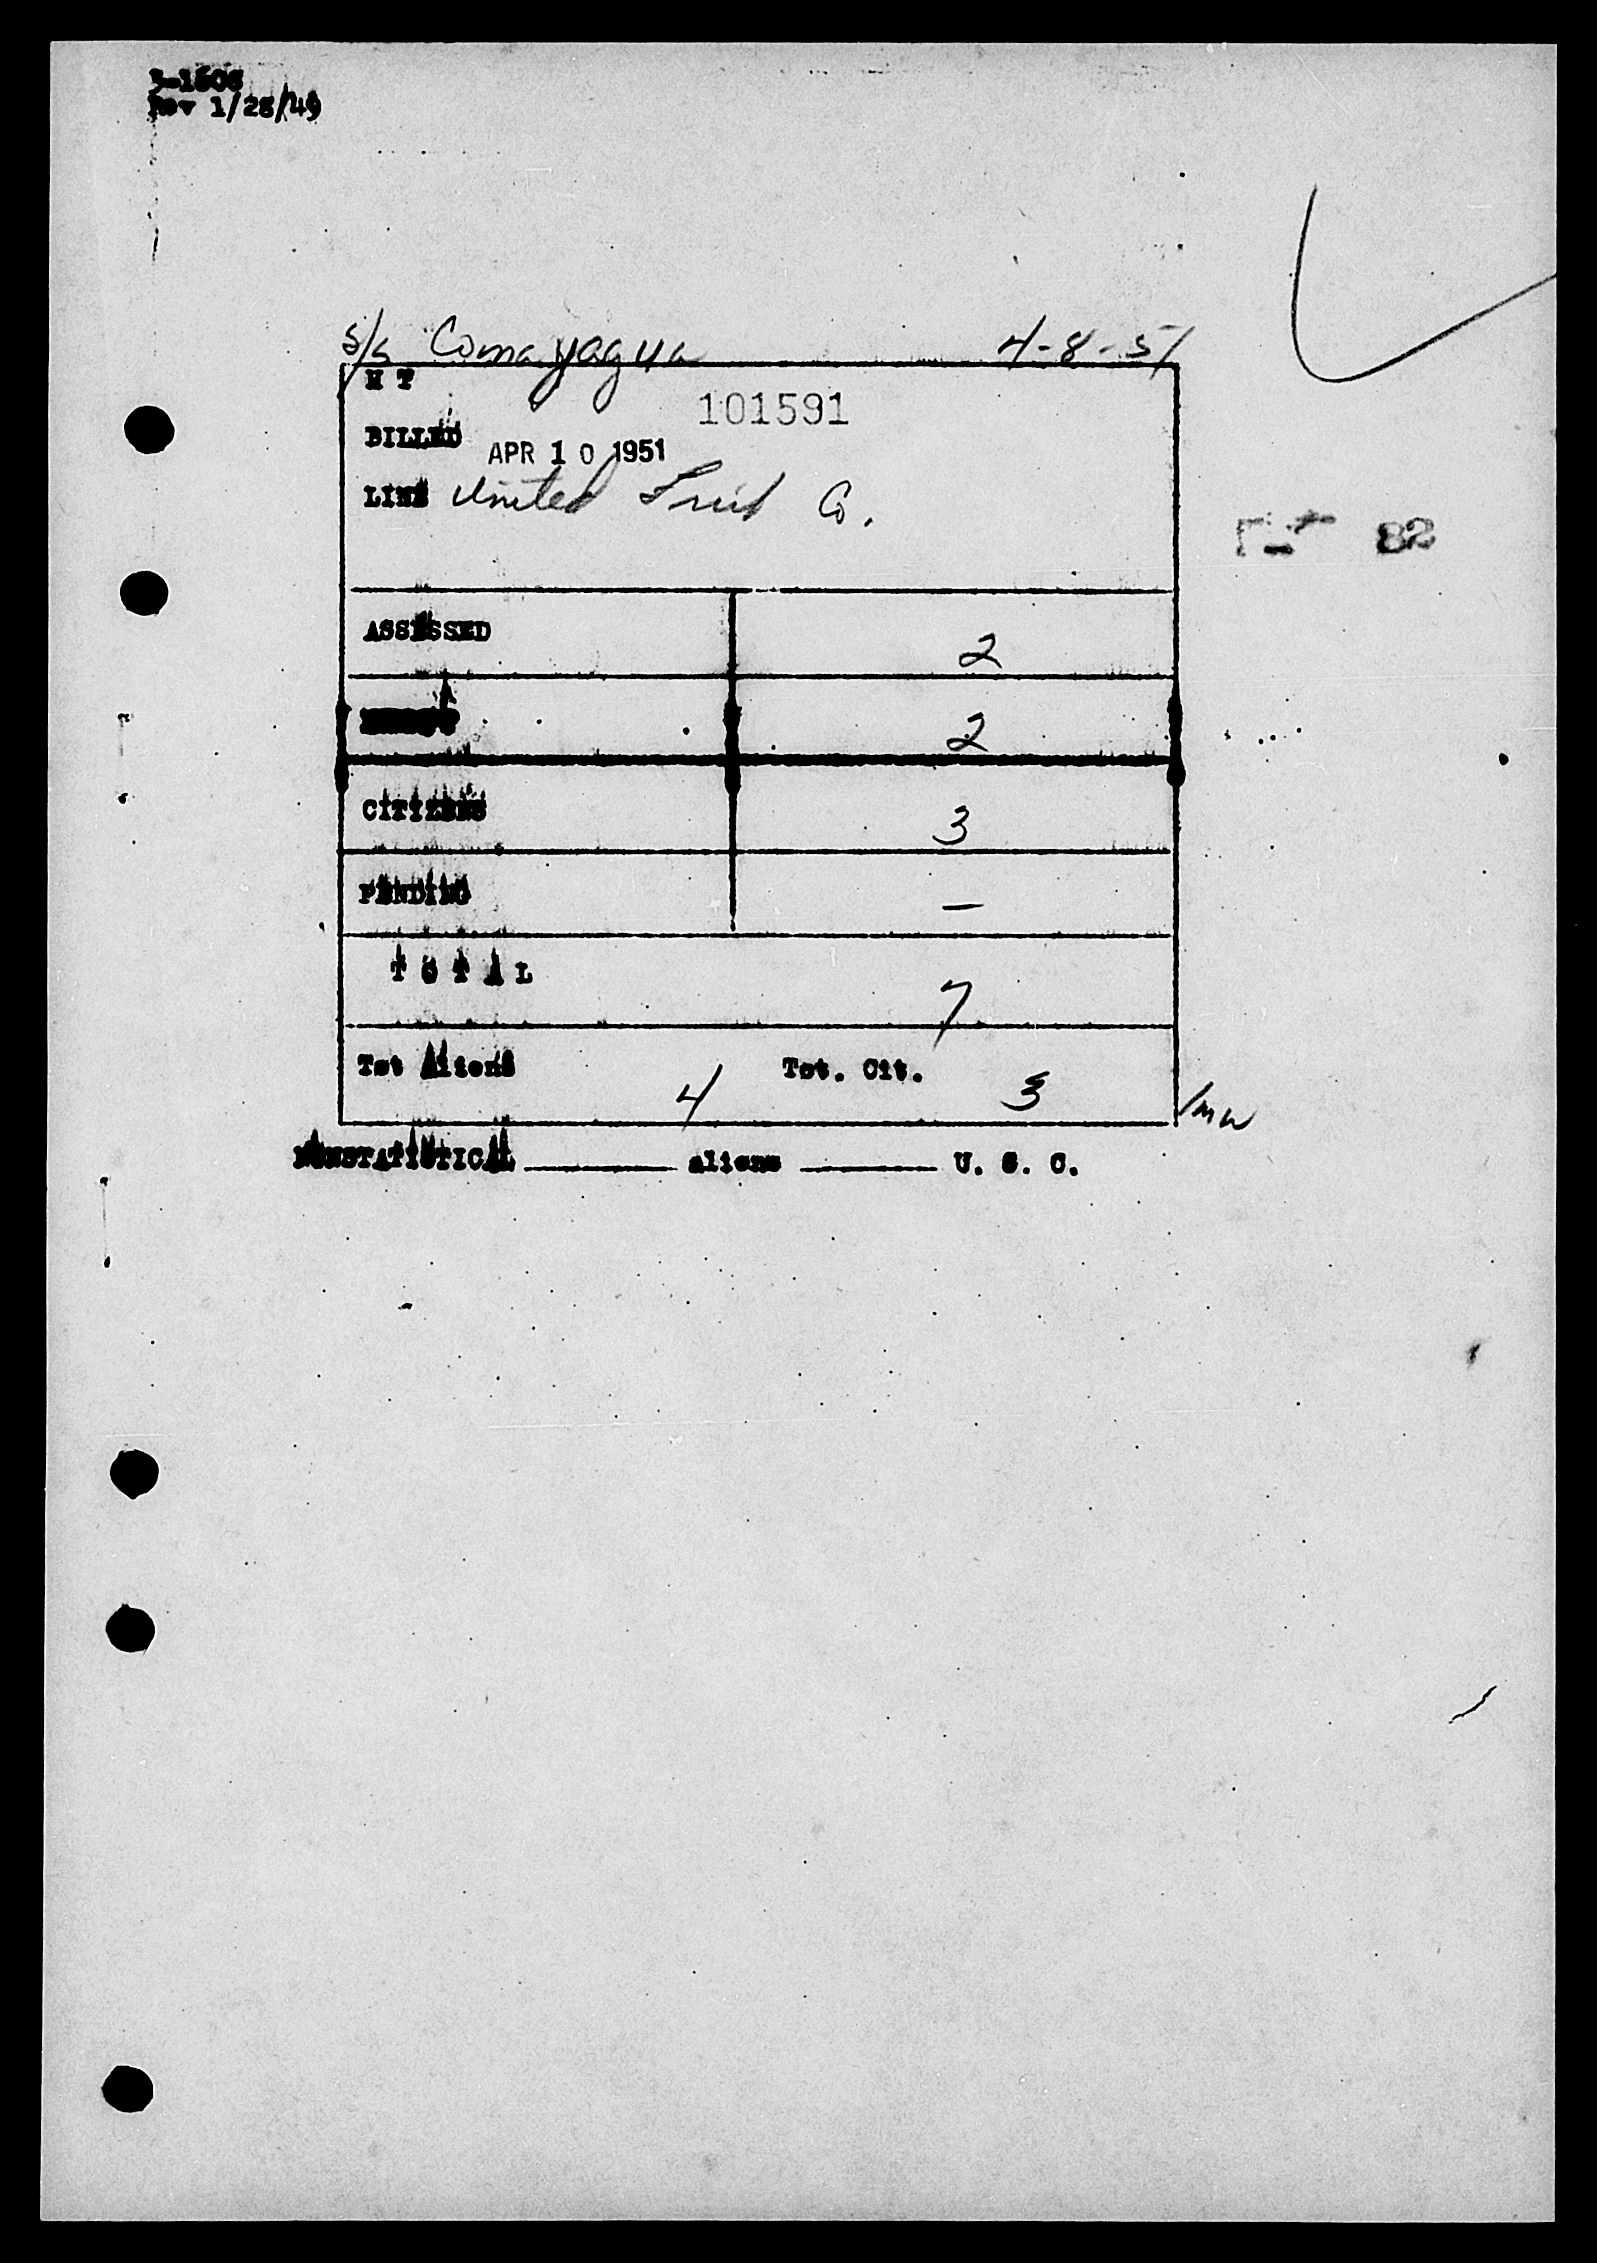 3-1808
Rev 1/28/49
S/S Comayagua 4-8-51
H T
101591
BILLED APR 10 1951
LINE United Fruit Co.
ASSESSED 2
EXEMPT 2
CITIZENS 3
PENDING —
TOTAL 7
Tot Aliens 4 Tot. Cit. 3 /mw
NONSTATISTICAL ______ aliens ______ U. S. C.